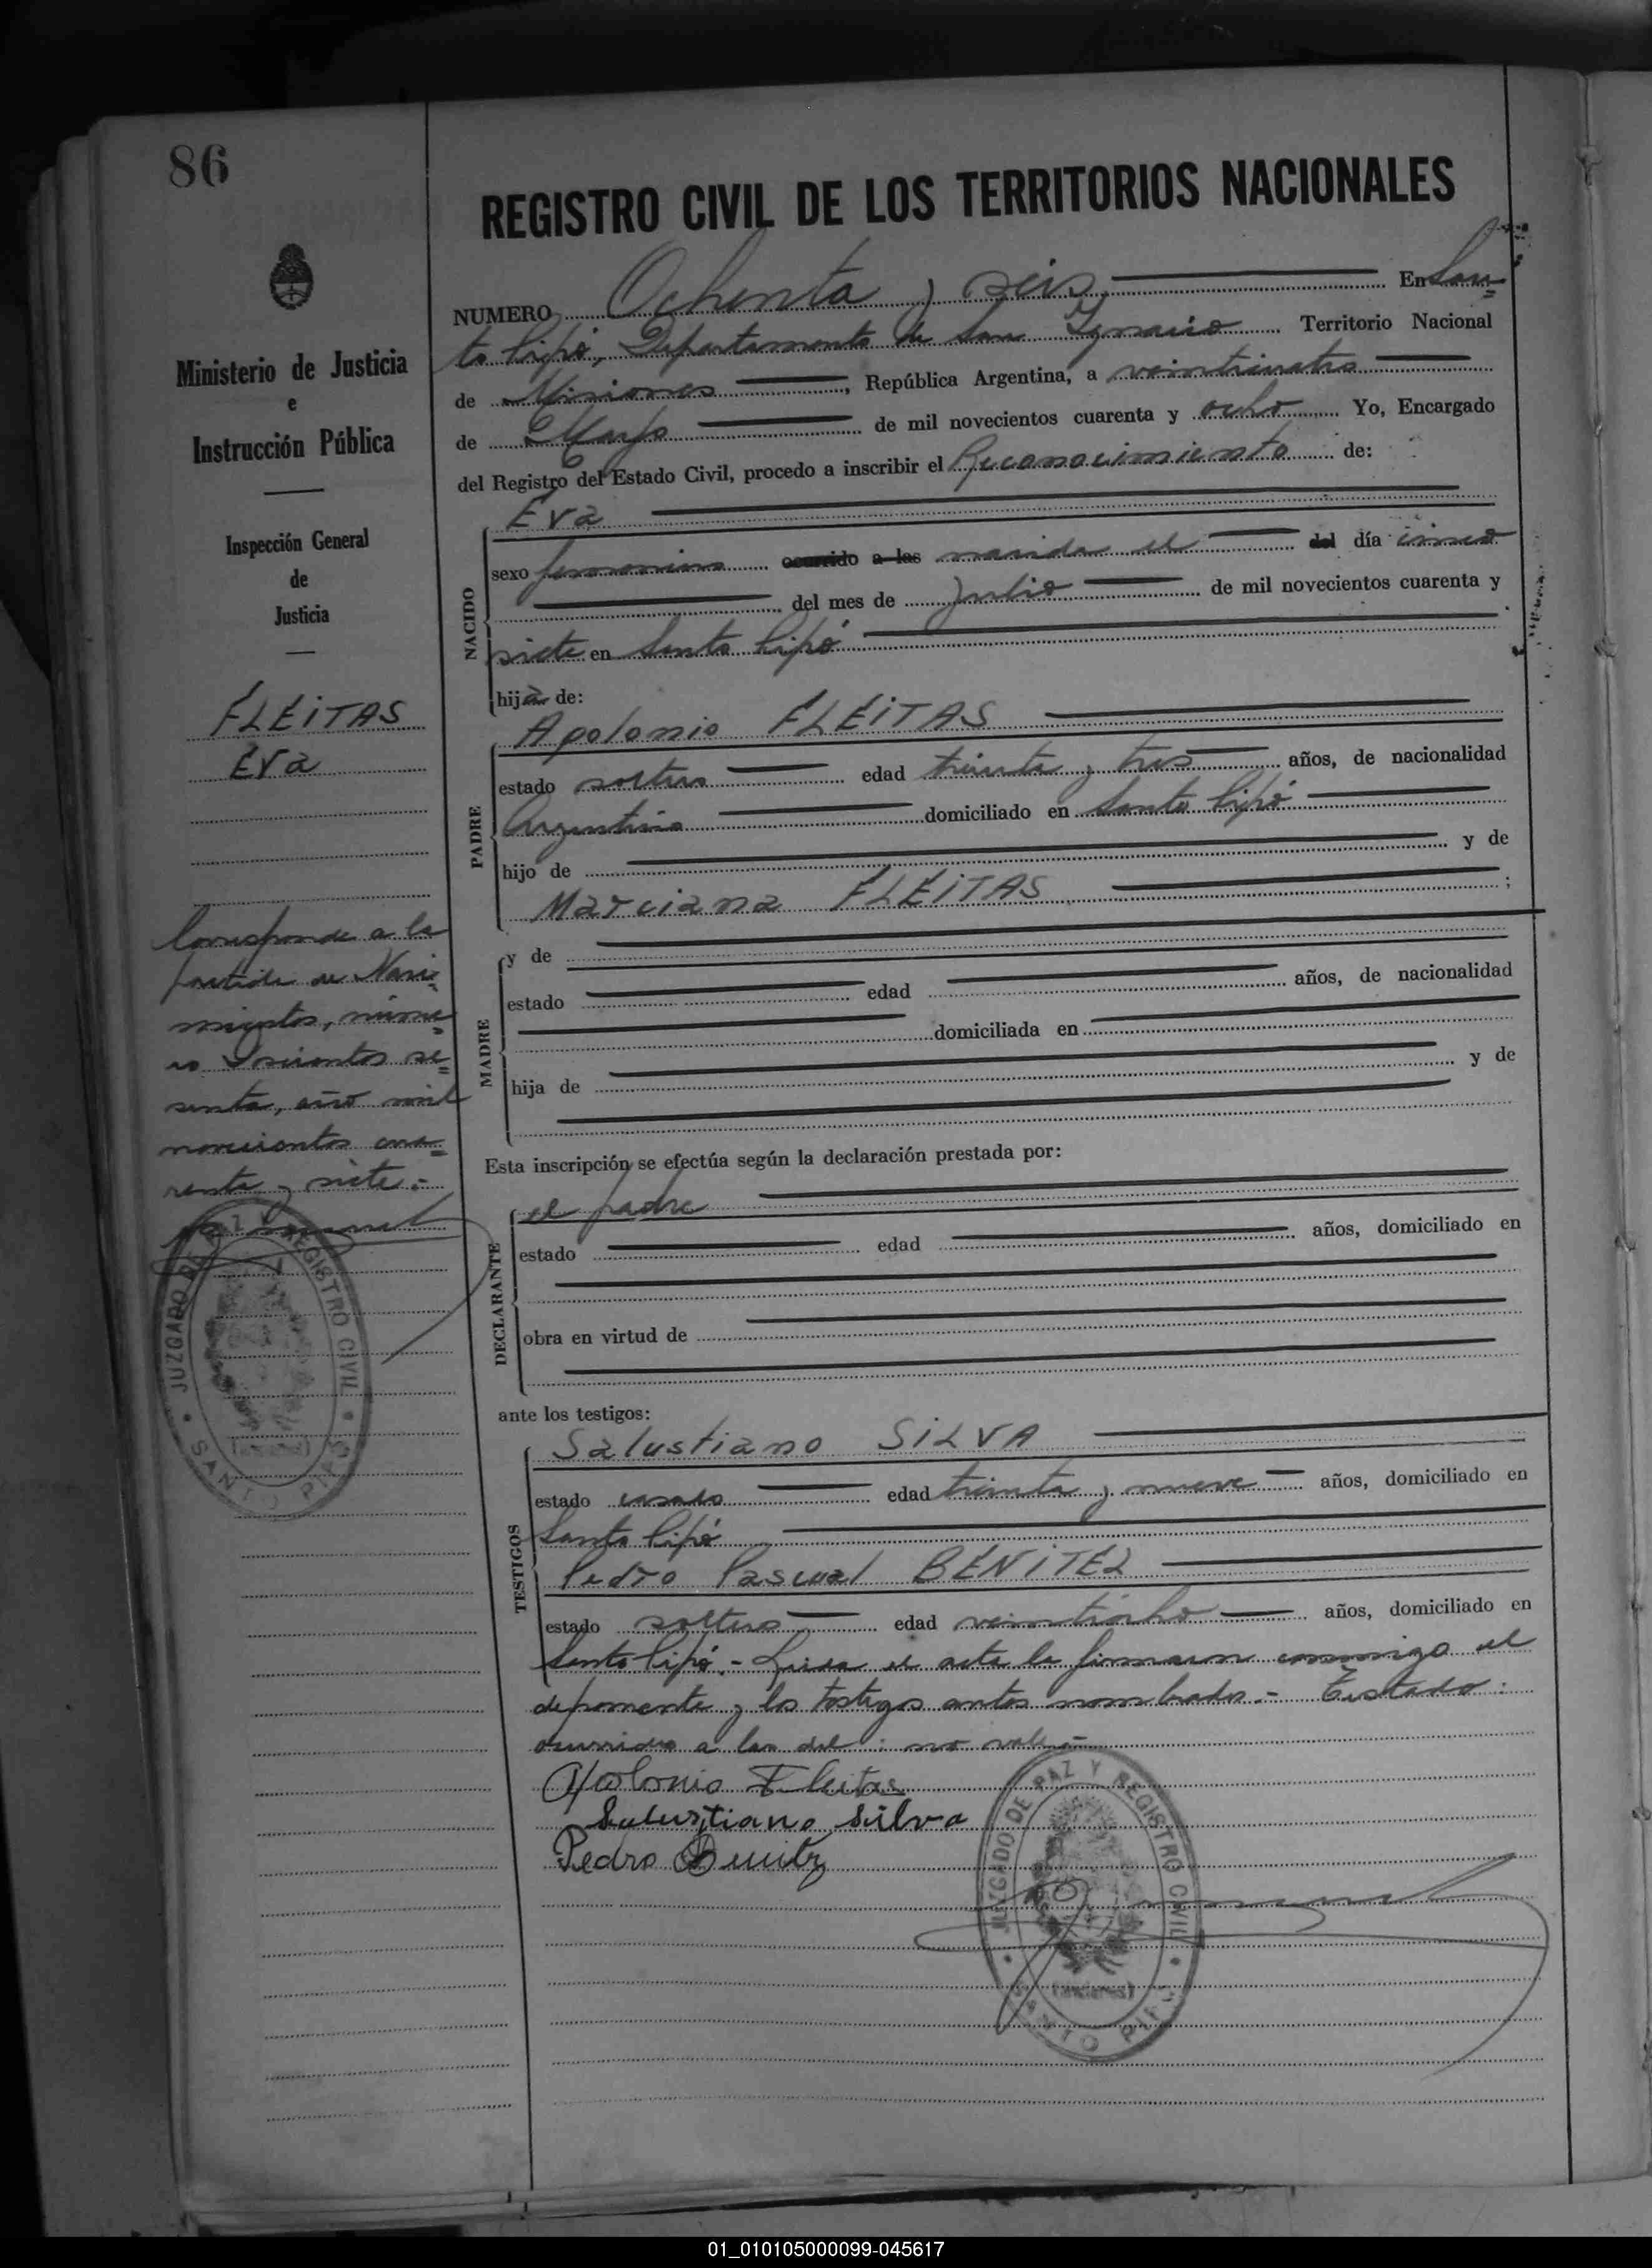 86
REGISTRO CIVIL DE LOS TERRITORIOS NACIONALES
NUMERO Ochenta y seis En San=
to Pipó, Departamento de San Ignacio Territorio Nacional
de Misiones, República Argentina, a veinticuatro
de Mayo de mil novecientos cuarenta y ocho Yo, Encargado
del Registro del Estado Civil, procedo a inscribir el Reconocimiento de:
Ministerio de Justicia
e
Instrucción Pública
Inspección General
de
Justicia
FLEITAS
Eva
Corresponde a la
partida de Naci=
mientos, núme=
ro Doscientos se=
senta, año mil
novecientos cua=
renta y siete.-
JUZGADO DE PAZ Y REGISTRO CIVIL
SANTO PIPÓ
NACIDO
Eva
sexo femenino ocurrido a las nacida el del día cinco
del mes de Julio de mil novecientos cuarenta y
siete en Santo Pipó
hija de:
PADRE
Apolonio FLEITAS
estado soltero edad treinta y tres años, de nacionalidad
Argentino domiciliado en Santo Pipó
hijo de y de
Marciana FLEITAS ;
MADRE
y de
estado edad años, de nacionalidad
domiciliada en
hija de y de
Esta inscripción se efectúa según la declaración prestada por:
DECLARANTE
el padre
estado edad años, domiciliado en
obra en virtud de
ante los testigos:
TESTIGOS
Salustiano SILVA
estado casado edad treinta y nueve años, domiciliado en
Santo Pipó
Pedro Pascual BENITEZ
estado soltero edad veintiocho años, domiciliado en
Santo Pipó.- Leida el acta la firmaron conmigo el
deponente y los testigos antes nombrados.- Testado:
ocurrido a las del: no vale.-
Apolonio Fleitas
Salustiano Silva
Pedro Benitez
JUZGADO DE PAZ Y REGISTRO CIVIL
(MISIONES)
SANTO PIPÓ
01_010105000099-045617